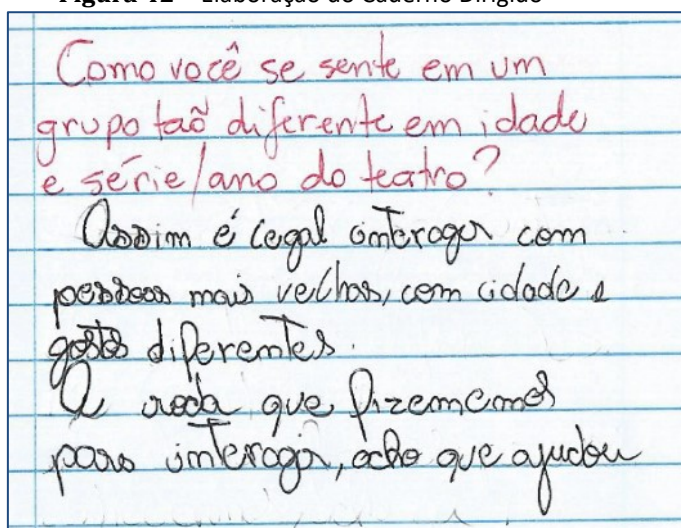 Figura 12 – Elaboração do Caderno Dirigido
Como você se sente em um
grupo taõ diferente em idade
e série/ano do teatro?
Assim é legal interagir com
pessoas mais velhas, com idade e
gostos diferentes.
A roda que fizememos
para interagir, acho que ajudou